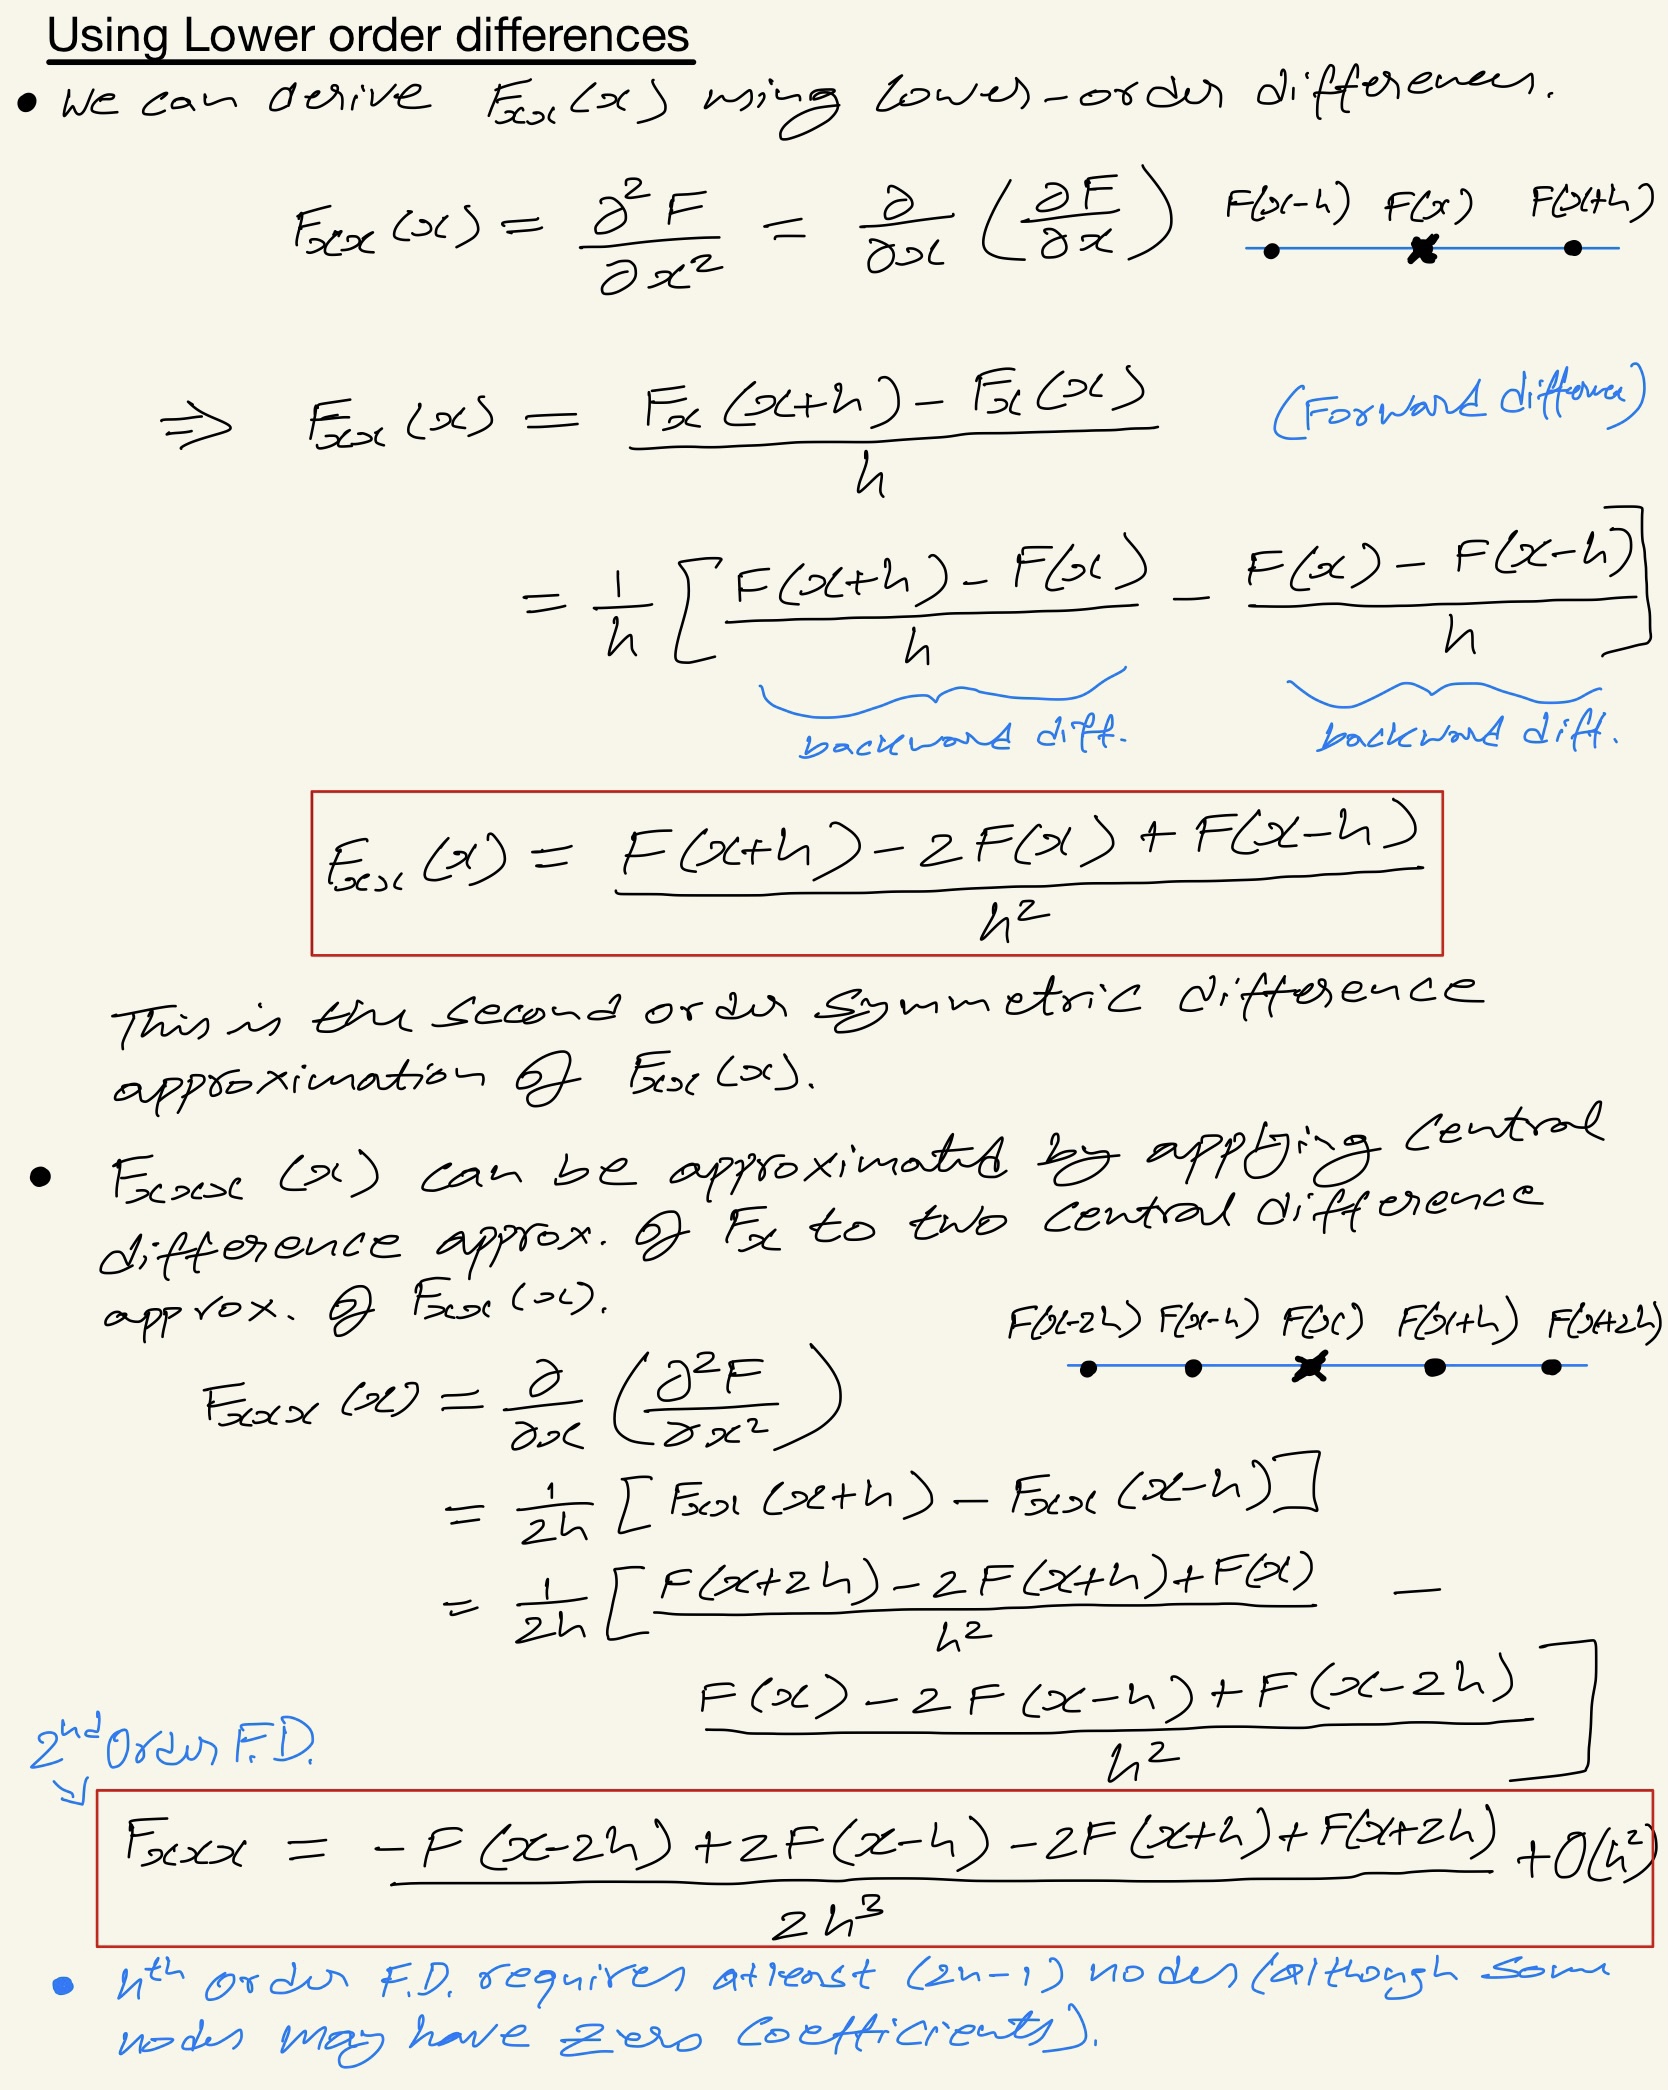 Using Lower order differences
• We can derive Fxx(x) using lower-order differences.
Fxx(x) = ∂²F/∂x² = ∂/∂x (∂F/∂x)
F(x-h) F(x) F(x+h)
⇒ Fxx(x) = (Fx(x+h) - Fx(x))/h (Forward difference)
= 1/h [ (F(x+h) - F(x))/h - (F(x) - F(x-h))/h ]
backward diff. backward diff.
Fxx(x) = (F(x+h) - 2F(x) + F(x-h))/h²
This is the second order symmetric difference
approximation of Fxx(x).
• Fxxx(x) can be approximated by applying central
difference approx. of Fx to two central difference
approx. of Fxx(x).
F(x-2h) F(x-h) F(x) F(x+h) F(x+2h)
Fxxx(x) = ∂/∂x (∂²F/∂x²)
= 1/2h [Fxx(x+h) - Fxx(x-h)]
= 1/2h [ (F(x+2h) - 2F(x+h) + F(x))/h² -
(F(x) - 2F(x-h) + F(x-2h))/h² ]
2nd Order F.D.
Fxxx = (-F(x-2h) + 2F(x-h) - 2F(x+h) + F(x+2h))/2h³ + O(h²)
• nth order F.D. requires atleast (2n-1) nodes (although some
nodes may have zero coefficients).